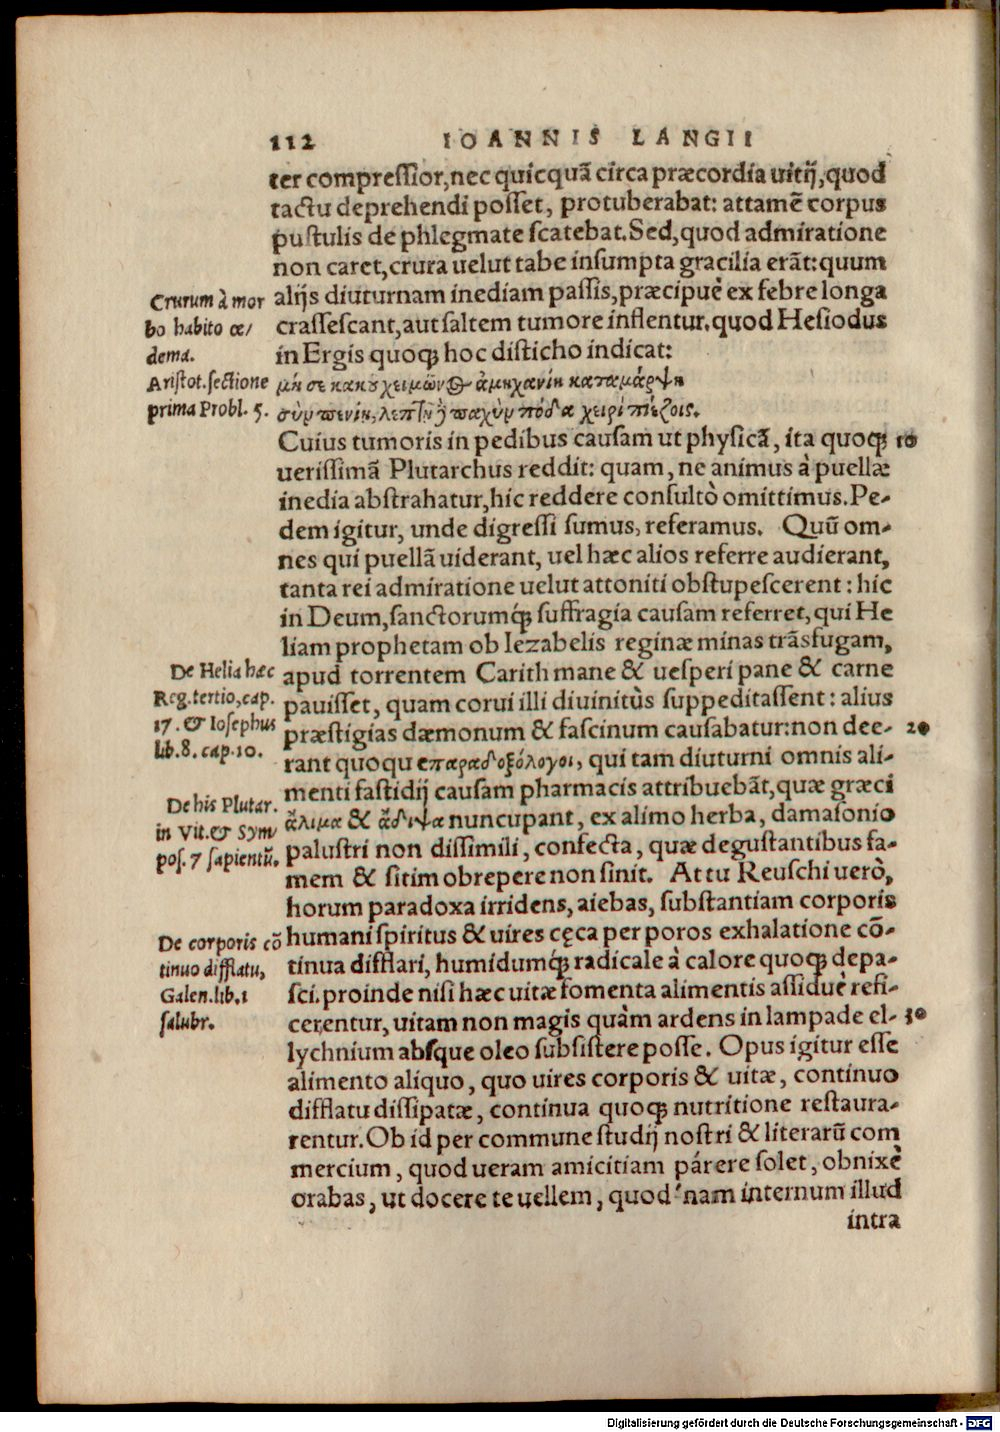 112 IOANNIS LANGII
ter compressior, nec quicquã circa præcordia uitij, quod
tactu deprehendi posset, protuberabat: attamẽ corpus
pustulis de phlegmate scatebat. Sed, quod admiratione
non caret, crura uelut tabe insumpta gracilia erãt: quum
alijs diuturnam inediam passis, præcipuè ex febre longa
crassescant, aut saltem tumore inflentur. quod Hesiodus
in Ergis quoq; hoc disticho indicat:
Crurum à mor
bo habito œ/
dema.
Aristot. sectione
prima Probl. 5.
μή σε κακοῦ χειμῶνος ἀμηχανίη καταμάρψη
σὺν πενίη, λεπτῆ ἢ παχὺν πόδα χειρὶ πιέζοις.
Cuius tumoris in pedibus causam ut physicã, ita quoq; 10
uerissimã Plutarchus reddit: quam, ne animus à puellæ
inedia abstrahatur, hic reddere consultò omittimus. Pe-
dem igitur, unde digressi sumus, referamus. Quũ om-
nes qui puellã uiderant, uel hæc alios referre audierant,
tanta rei admiratione uelut attoniti obstupescerent: hic
in Deum, sanctorumq́; suffragia causam referret, qui He
liam prophetam ob Iezabelis reginæ minas trãsfugam,
apud torrentem Carith mane & uesperi pane & carne
pauisset, quam corui illi diuinitùs suppeditassent: alius
præstigias dæmonum & fascinum causabatur: non dee- 20
rant quoque παραδοξόλογοι, qui tam diuturni omnis ali-
menti fastidij causam pharmacis attribuebãt, quæ græci
ἄλιμα & ἄδιψα nuncupant, ex alimo herba, damasonio
palustri non dissimili, confecta, quæ degustantibus fa-
mem & sitim obrepere non sinit. At tu Reuschi uerò,
horum paradoxa irridens, aiebas, substantiam corporis
humani spiritus & uires cęca per poros exhalatione cõ-
tinua difflari, humidumq́; radicale à calore quoq; depa-
sci. proinde nisi hæc uitæ fomenta alimentis assiduè refi-
cerentur, uitam non magis quàm ardens in lampade el- 30
lychnium absque oleo subsistere posse. Opus igitur esse
alimento aliquo, quo uires corporis & uitæ, continuo
difflatu dissipatæ, continua quoq; nutritione restaura-
rentur. Ob id per commune studij nostri & literarũ com
mercium, quod ueram amicitiam párere solet, obnixè
orabas, ut docere te uellem, quod nam internum illud
intra
De Helia hæc
Reg. tertio, cap.
17. & Iosephus
lib. 8. cap. 10.
De his Plutar.
in Vit. & Sym
pos. 7 sapientũ.
De corporis cõ
tinuo difflatu,
Galen. lib. 1
salubr.
Digitalisierung gefördert durch die Deutsche Forschungsgemeinschaft - DFG